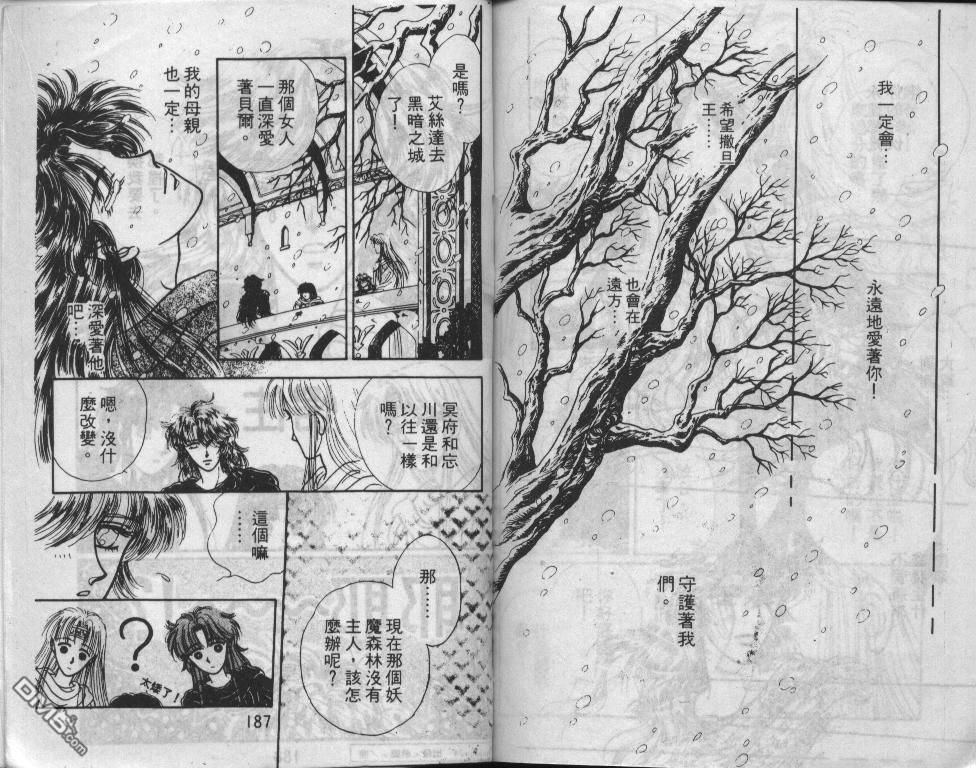 我一定會…
永遠地愛著你！
希望撒旦
王……
也會在
遠方…
守護著我
們。
是嗎？
艾絲達去
黑暗之城
了！
那個女人
一直深愛
著貝爾。
我的母親
也一定…
深愛著他
吧…
冥府和忘
川還是和
以往一樣
嗎？
嗯，沒什
麼改變。
這個嘛
……
那……
現在那個妖
魔森林沒有
主人，該怎
麼辦呢？
？
太棒了！
187
DM5
.com